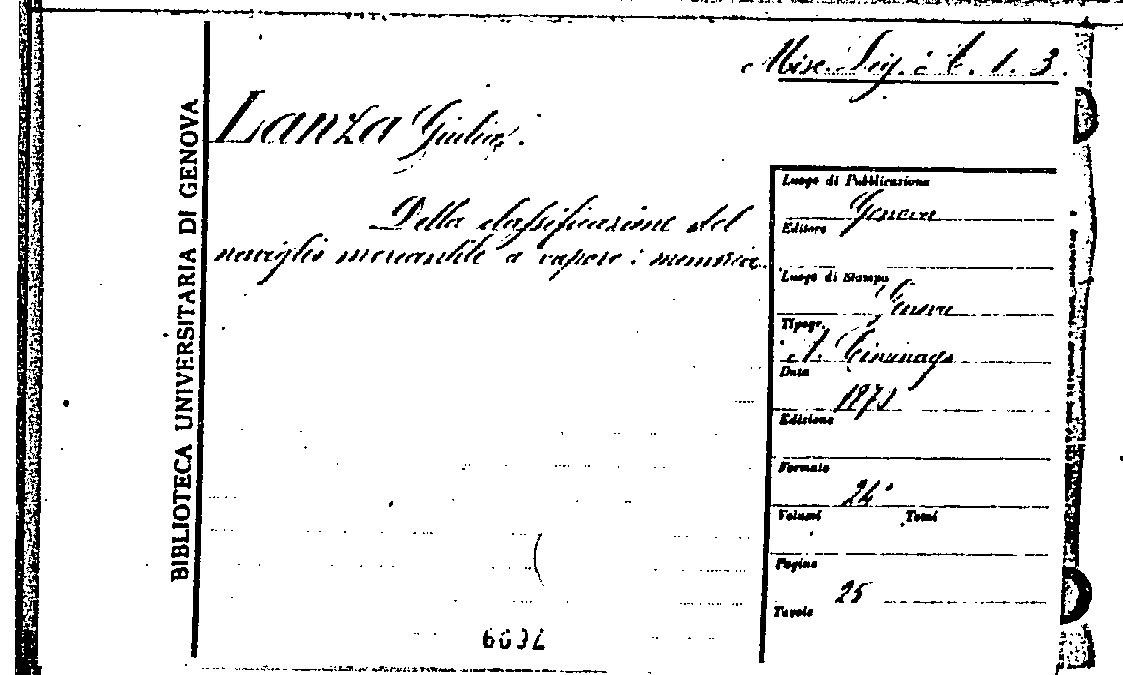 Misc. Lig. A. 1. 3.
BIBLIOTECA UNIVERSITARIA DI GENOVA
Lanza Giulio.
Della classificazione del
naviglio mercantile a vapore: memoria.
Luogo di Pubblicazione
Genova
Editore
Luogo di Stampa
Genova
Tipogr.
A. Ciminago
Data
1871
Edizione
Formato
24°
Volumi Tomi
Pagine
25
Tavole